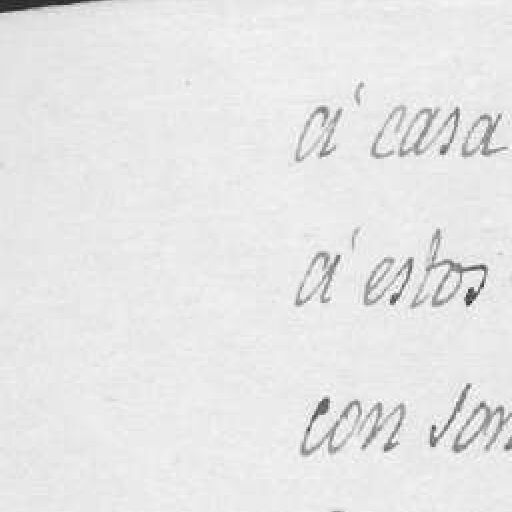 á casa
á estos
con son